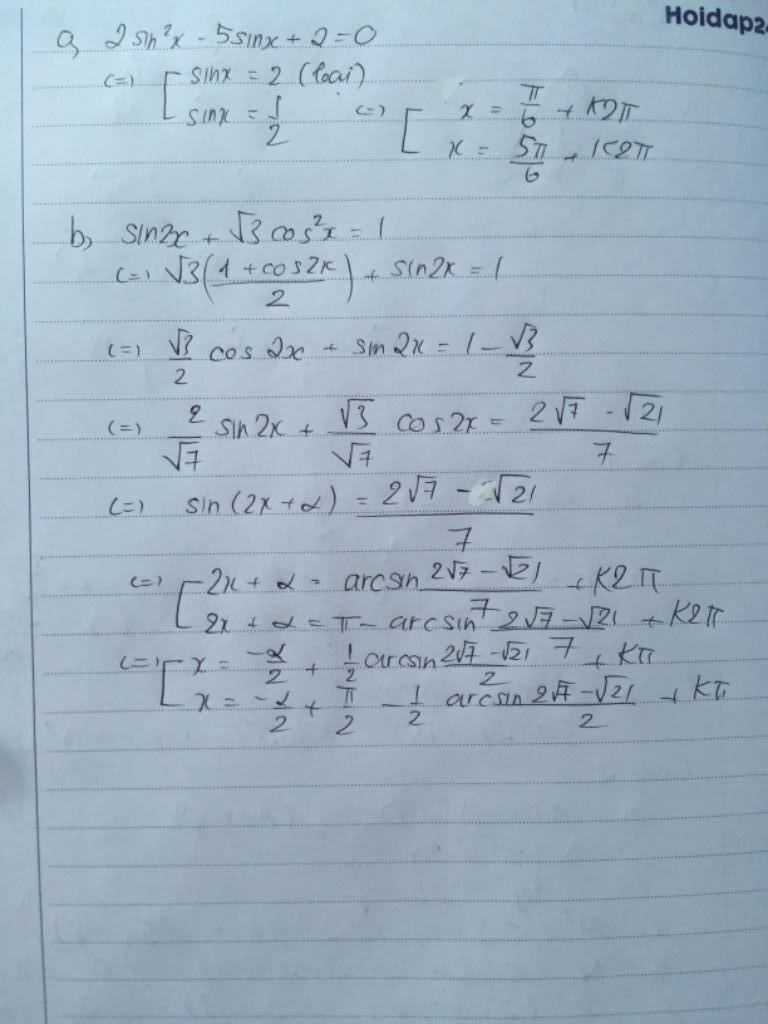 Hoidap2
a, 2sin²x - 5sinx + 2 = 0
<=> [ sinx = 2 (loại)
sinx = 1/2 <=> [ x = π/6 + k2π
x = 5π/6 + k2π
b, sin2x + √3 cos²x = 1
<=> √3((1 + cos2x)/2) + sin2x = 1
<=> √3/2 cos 2x + sin 2x = 1 - √3/2
<=> 2/√7 sin2x + √3/√7 cos2x = (2√7 - √21)/7
<=> sin(2x + α) = (2√7 - √21)/7
<=> [ 2x + α = arcsin (2√7 - √21)/7 + k2π
2x + α = π - arcsin (2√7 - √21)/7 + k2π
<=> [ x = -α/2 + 1/2 arcsin (2√7 - √21)/2 + kπ
x = -α/2 + π/2 - 1/2 arcsin (2√7 - √21)/2 + kπ